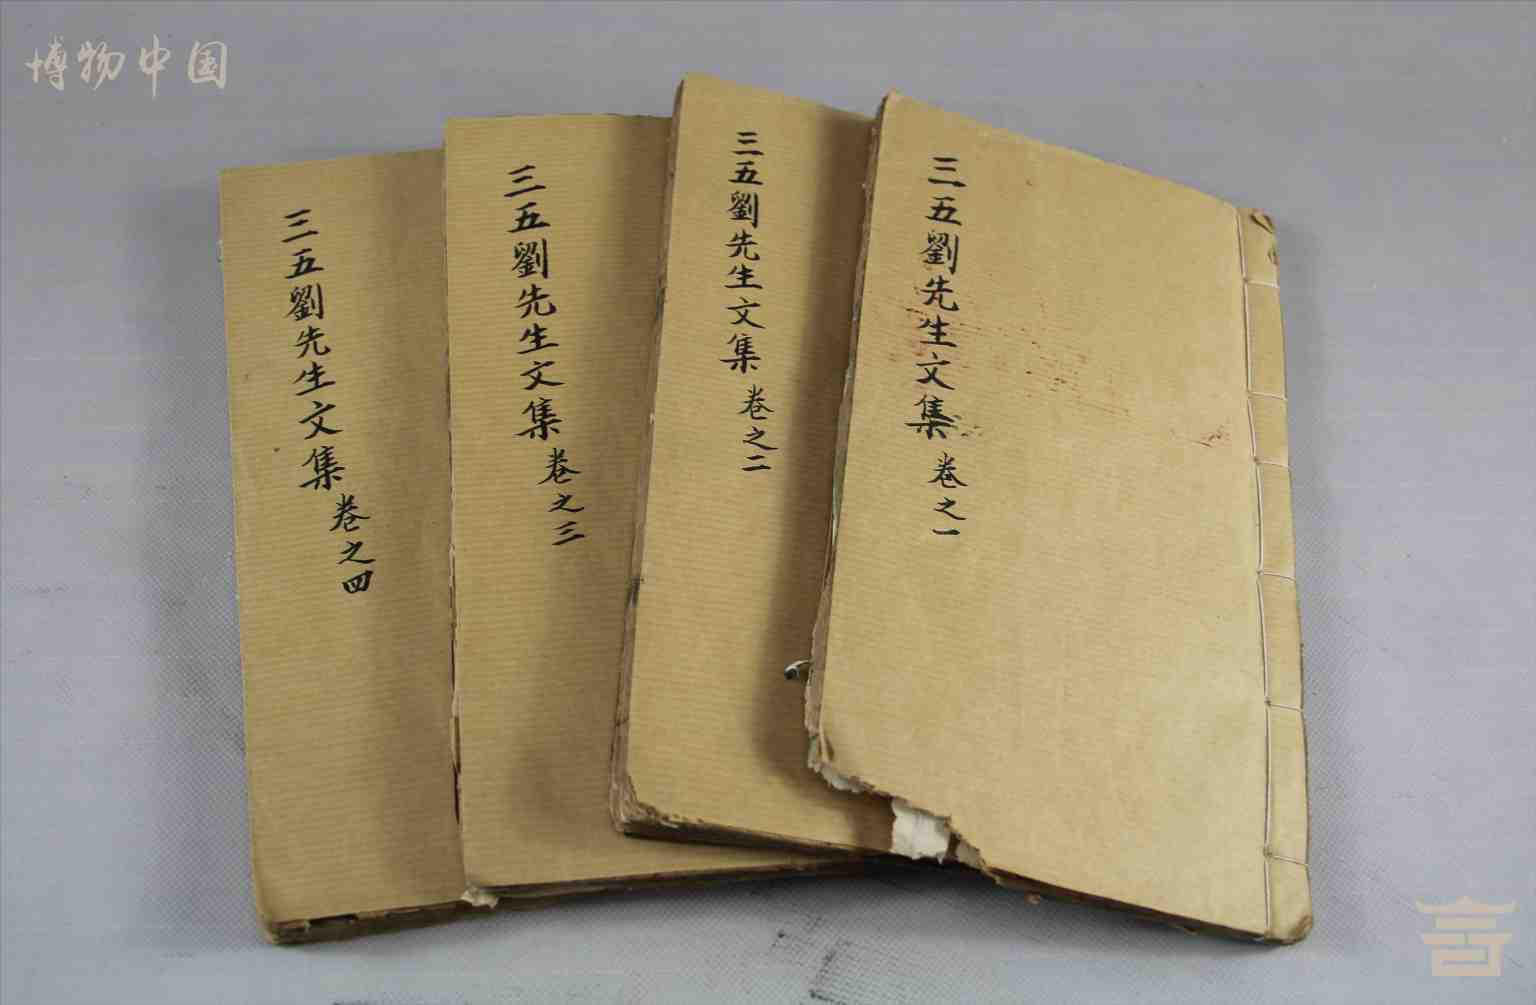 博物中国
三五劉先生文集 卷之一
三五劉先生文集 卷之二
三五劉先生文集 卷之三
三五劉先生文集 卷之四